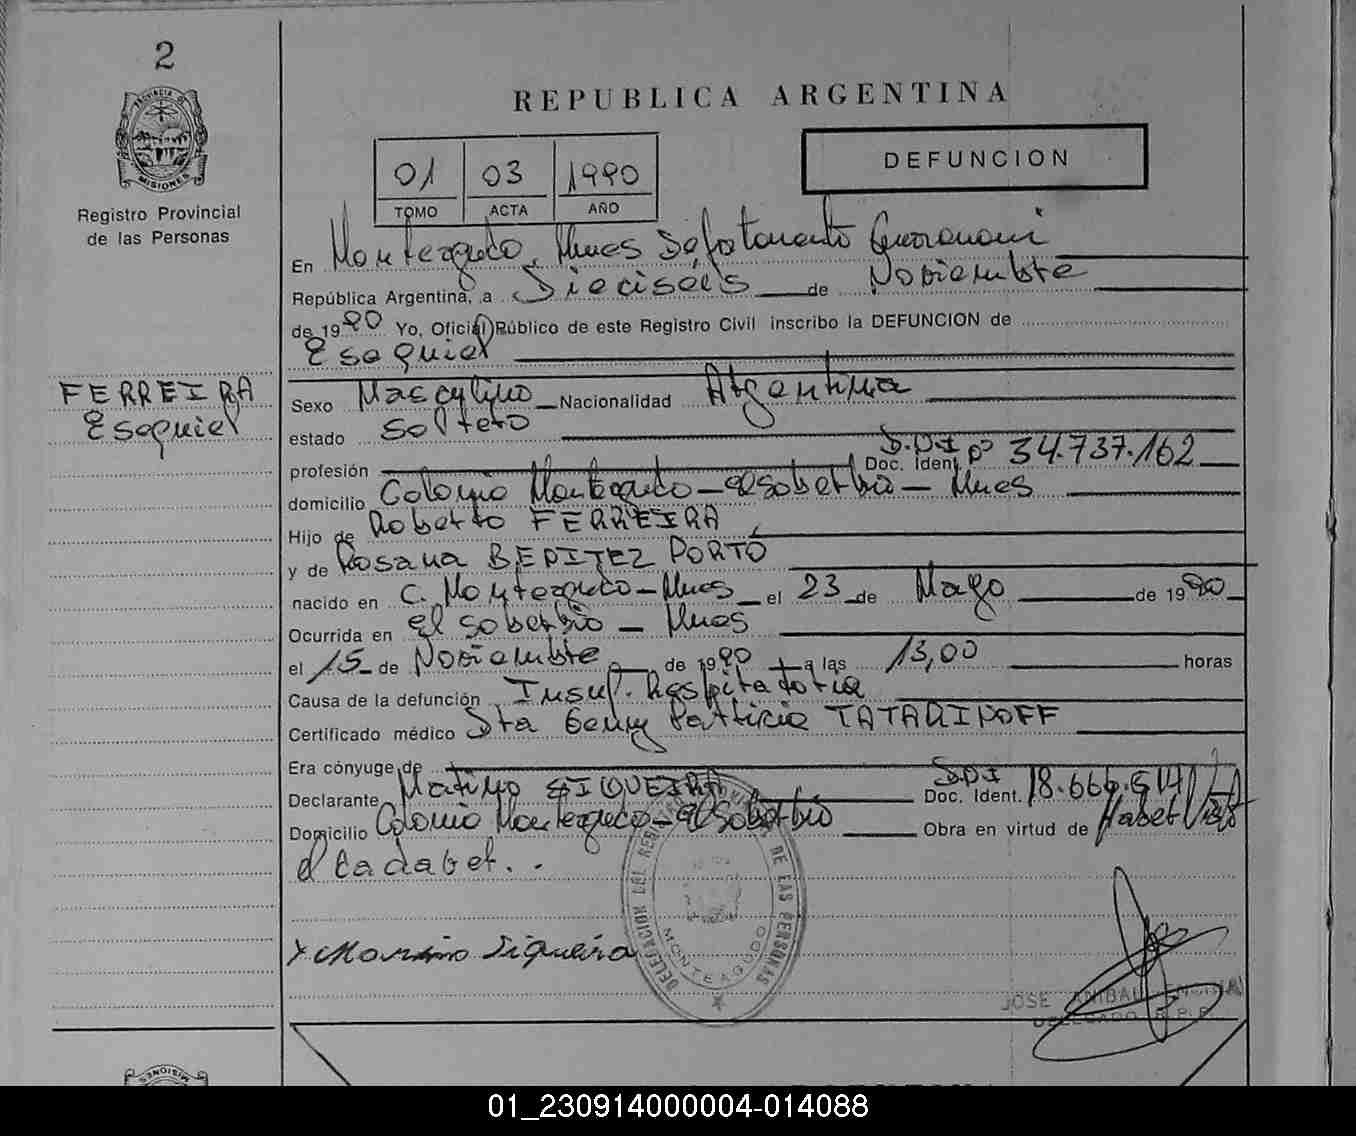 2
PROVINCIA DE
MISIONES
Registro Provincial
de las Personas
FERREIRA
Esequiel
REPUBLICA ARGENTINA
01 03 1990
TOMO ACTA AÑO
DEFUNCION
En Monteagudo, Mnes Guaranani
República Argentina, a Dieciseis de Noviembre
de 1990 Yo, Oficial Público de este Registro Civil inscribo la DEFUNCION de
Esequiel
Sexo Masculino Nacionalidad Argentina
estado soltero
profesión Doc. Ident. D.N.I nº 34.737.162
domicilio Colonia Monteagudo - el soberbio - Mnes
Hijo de Roberto FERREIRA
y de Rosana BENITEZ PORTO
nacido en C. Monteagudo - Mnes el 23 de Mayo de 1990
Ocurrida en el soberbio - Mnes
el 15 de Noviembre de 1990 a las 13,00 horas
Causa de la defunción Insuf. Respiratoria
Certificado médico Sta Genny Patricia
Era cónyuge de
Declarante Marino SIQUEIRA Doc. Ident. D.N.I 18.666.
Domicilio Colonia Monteagudo - el soberbio Obra en virtud de Haber Visto
el cadaver. .
x Marino Siqueira
DELEGACION DEL REGISTRO PROVINCIAL DE LAS PERSONAS
MONTEAGUDO
JOSE ANIBAL
DELEGADO R.P.P.
MISIONES
01_230914000004-014088